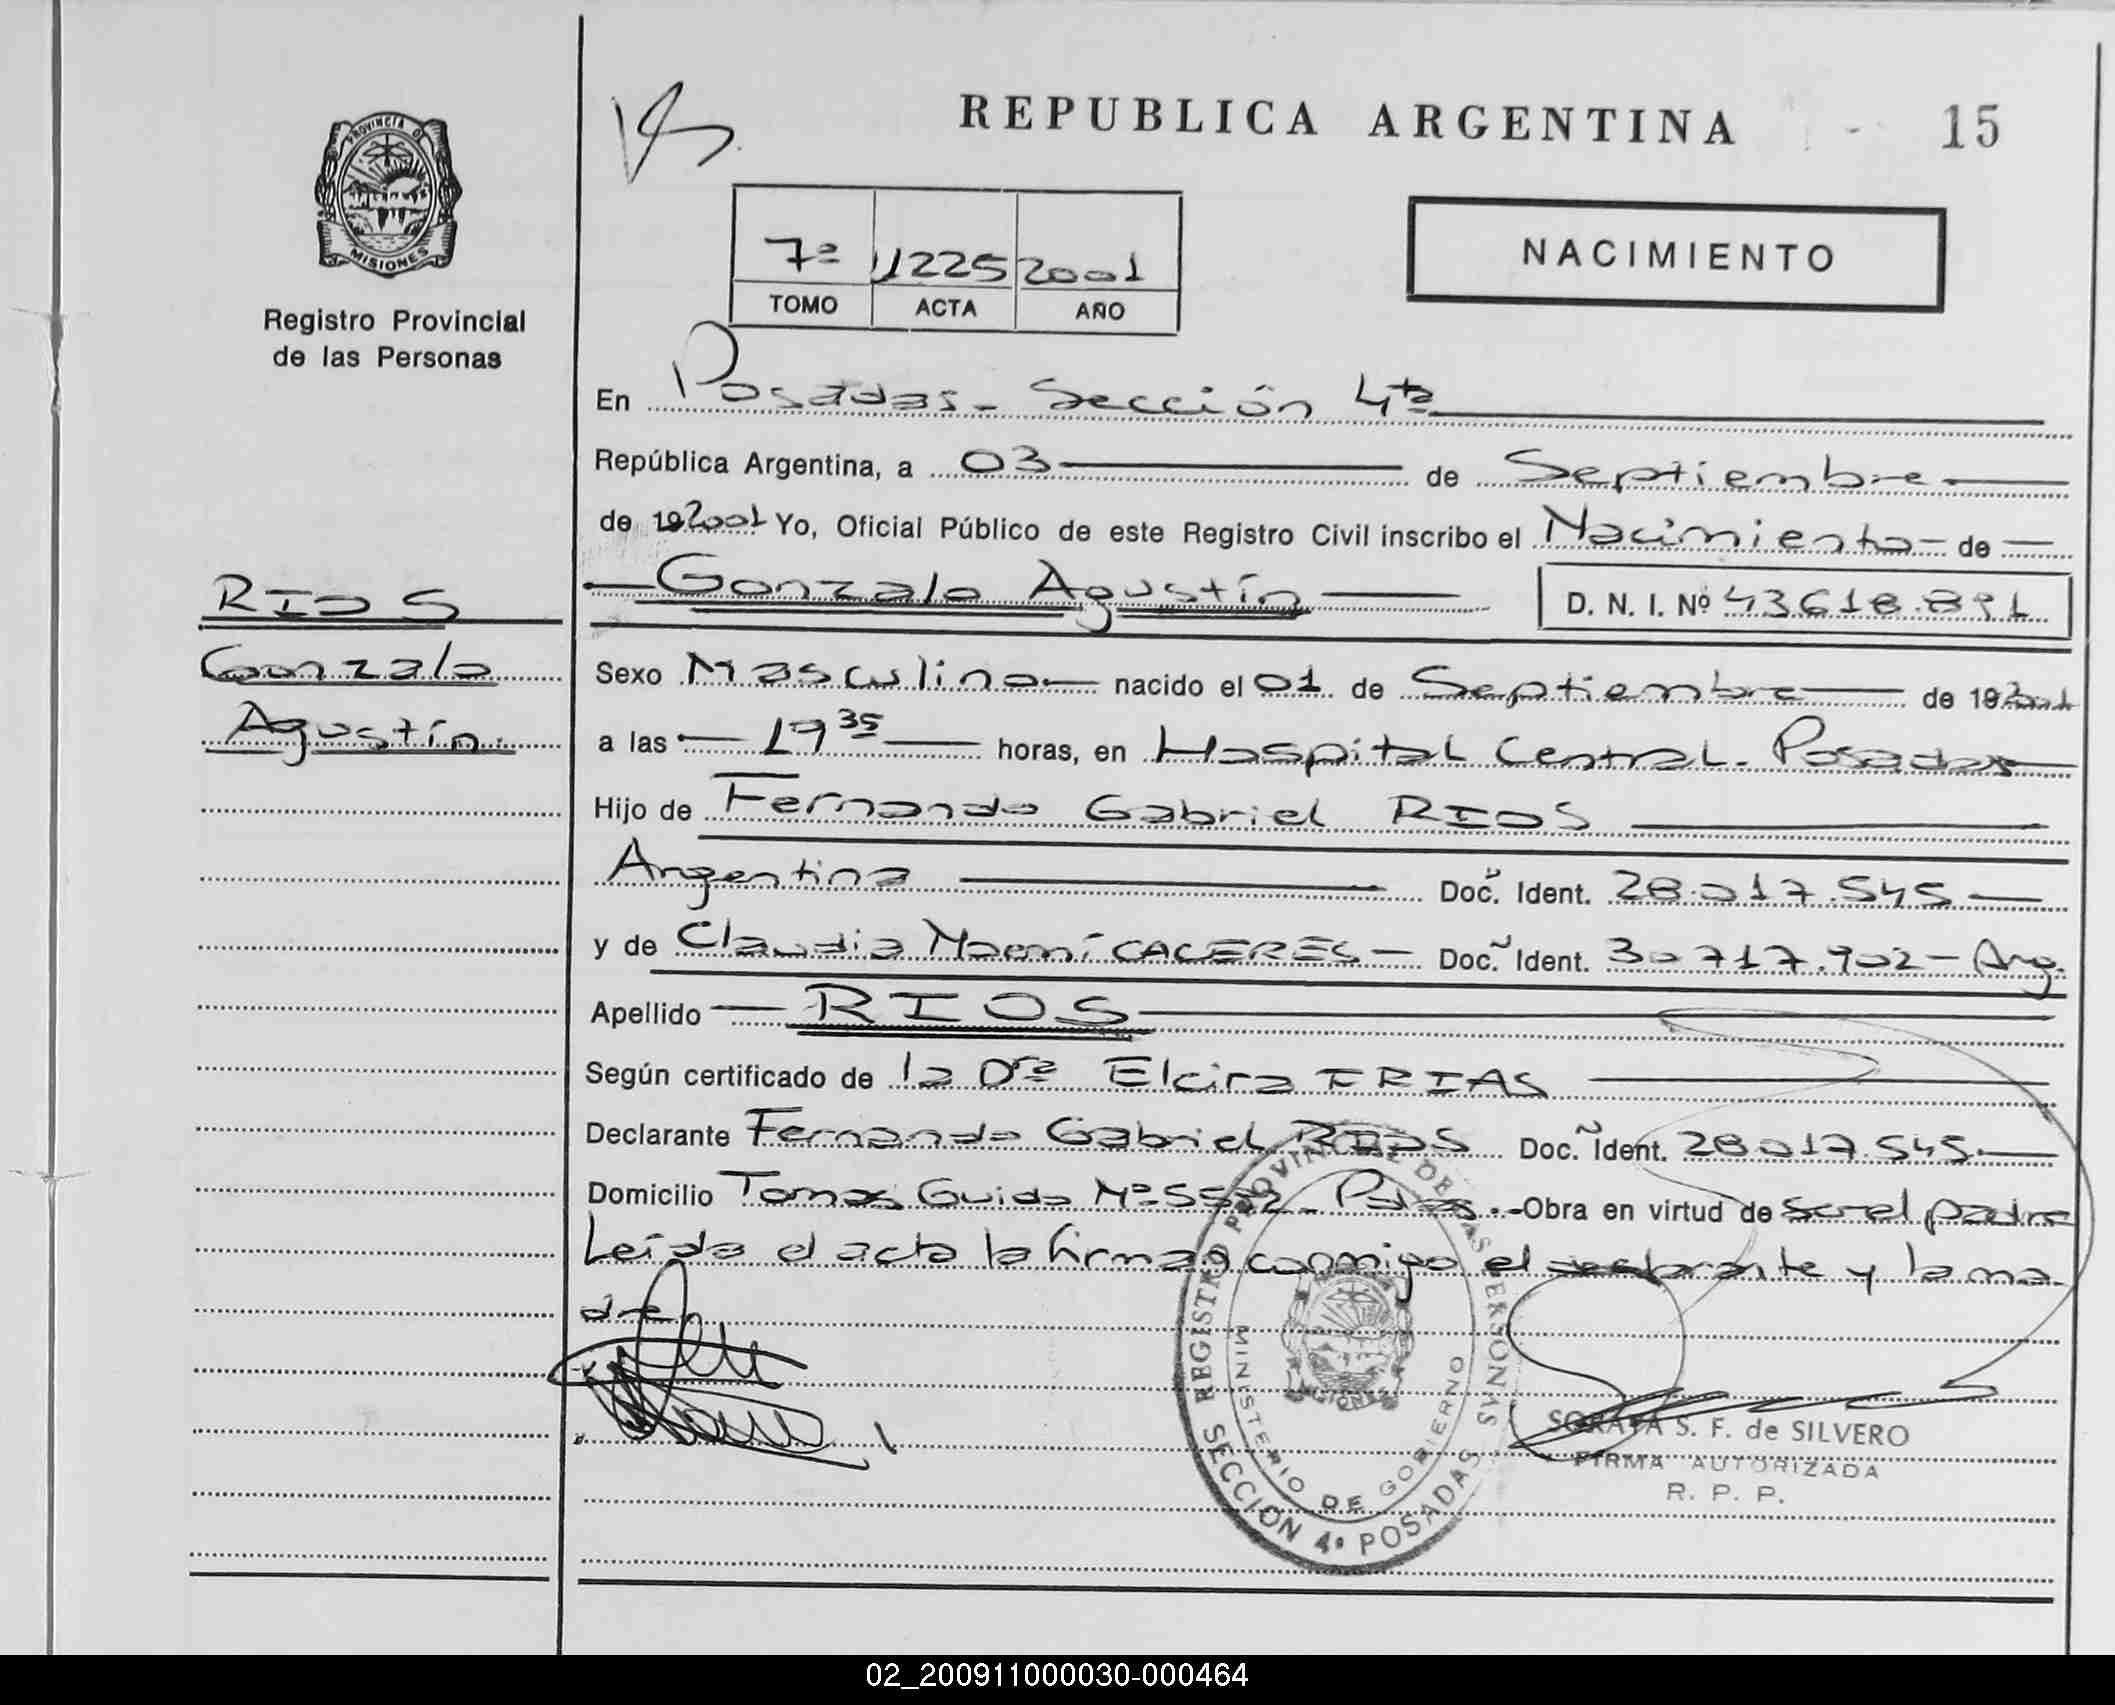 REPUBLICA ARGENTINA
15
PROVINCIA D
MISIONES
Registro Provincial
de las Personas
7ª 1225 2001
TOMO ACTA AÑO
NACIMIENTO
En Posadas - Sección 4ta
República Argentina, a 03 de Septiembre
de 19 2001 Yo, Oficial Público de este Registro Civil inscribo el Nacimiento de
Gonzalo Agustín D. N. I. Nº 43618.891
RIOS
Gonzalo
Agustín.
Sexo Masculino nacido el 01 de Septiembre de 19 2001
a las 19 35 horas, en Hospital Central. Posadas
Hijo de Fernando Gabriel RIOS
Argentina Doc. Ident. 28.017.545
y de Claudia Noemí CACERES Doc. Ident. 30717.902 - Arg.
Apellido RIOS
Según certificado de la Dra Elcira FRIAS
Declarante Fernando Gabriel RIOS Doc. Ident. 28017.545
Domicilio Tomas Guido Nº - Obra en virtud de ser el padre
Leída el acta la firman conmigo el y la ma-
dre
REGISTRO PROVINCIAL DE LAS PERSONAS
MINISTERIO DE GOBIERNO
MISIONES
SECCIÓN 4ª POSADAS
SORAYA S. F. de SILVERO
FIRMA AUTORIZADA
R. P. P.
02_200911000030-000464